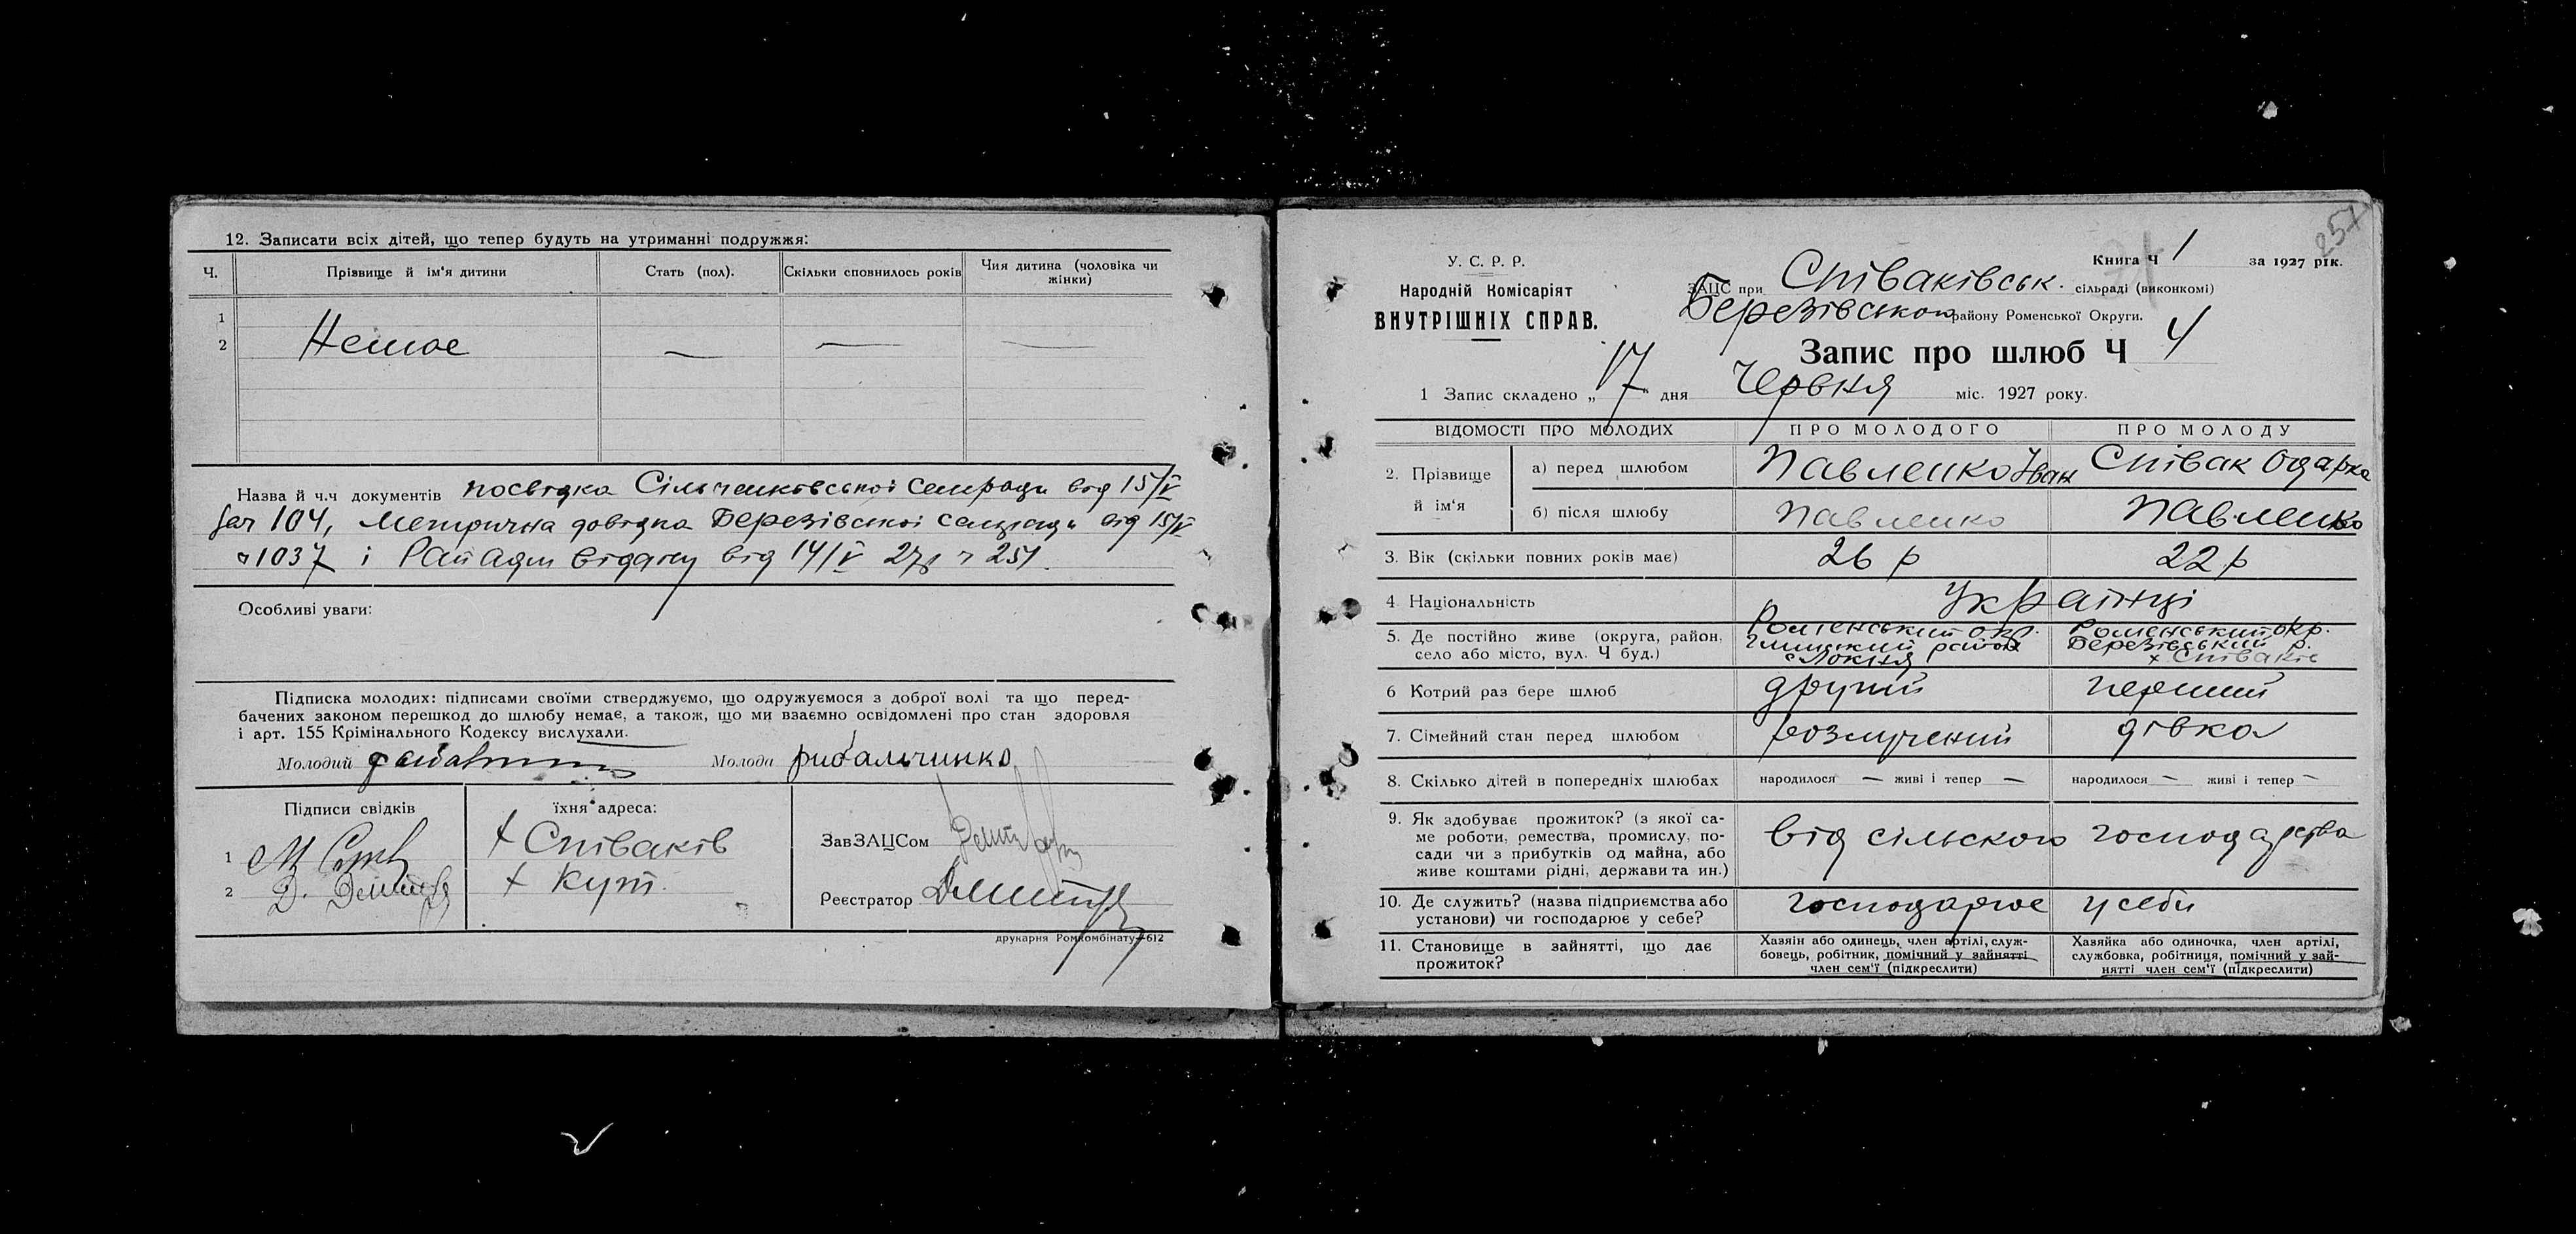 12. Записати всіх дітей, що тепер будуть на утриманні подружжя:
Ч. Прізвище й ім'я дитини Стать (пол). Скільки сповнилось років Чия дитина (чоловіка чи жінки)
1
2 Немає — — —
Назва й ч.ч документів посвідка від 15/V
104, Метрична довідка Березівської від 15/V
1037 і Рай Адм відділу від 14/V 27р ч 251.
Особливі уваги:
Підписка молодих: підписами своїми стверджуємо, що одружуємося з доброї волі та що перед-
бачених законом перешкод до шлюбу немає, а також, що ми взаємно освідомлені про стан здоровля
і арт. 155 Крімінального Кодексу вислухали.
Молодий Молода
Підписи свідків їхня адреса:
1 х Співаків ЗавЗАЦСом
2 х Кут. Реєстратор
друкарня Ромкомбінату—612
257
У. С. Р. Р.
Народній Комісаріят
ВНУТРІШНІХ СПРАВ.
Книга Ч 1 за 1927 рік.
ЗАЦС при Співаківськ. сільраді (виконкомі)
Березівського району Роменської Округи.
Запис про шлюб Ч 4
1 Запис складено „ 17 дня Червня міс. 1927 року.
ВІДОМОСТІ ПРО МОЛОДИХ ПРО МОЛОДОГО ПРО МОЛОДУ
2. Прізвище й ім'я а) перед шлюбом Павленко Іван Співак Одарка
б) після шлюбу Павленко Павленко
3. Вік (скільки повних років має) 26 р 22 р
4 Національність Українці
5. Де постійно живе (округа, район, Роменський окр. Роменський окр.
село або місто, вул. Ч буд.) район Березівський р.
с Локня х Співаків
6 Котрий раз бере шлюб другий перший
7. Сімейний стан перед шлюбом розлучений дівка
8. Скілько дітей в попередніх шлюбах народилося — живі і тепер — народилося — живі і тепер —
9. Як здобуває прожиток? (з якої са-
ме роботи, ремества, промислу, по- від сільського господарства
сади чи з прибутків од майна, або
живе коштами рідні, держави та ин.)
10. Де служить? (назва підприємства або господарює у себи
установи) чи господарює у себе?
11. Становище в зайнятті, що дає Хазяін або одинець, член артілі, служ- Хазяйка або одиночка, член артілі,
прожиток? бовець, робітник, помічний у зайнятті службовка, робітниця, помічний у зай-
член сем'ї (підкреслити) нятті член сем'ї (підкреслити)